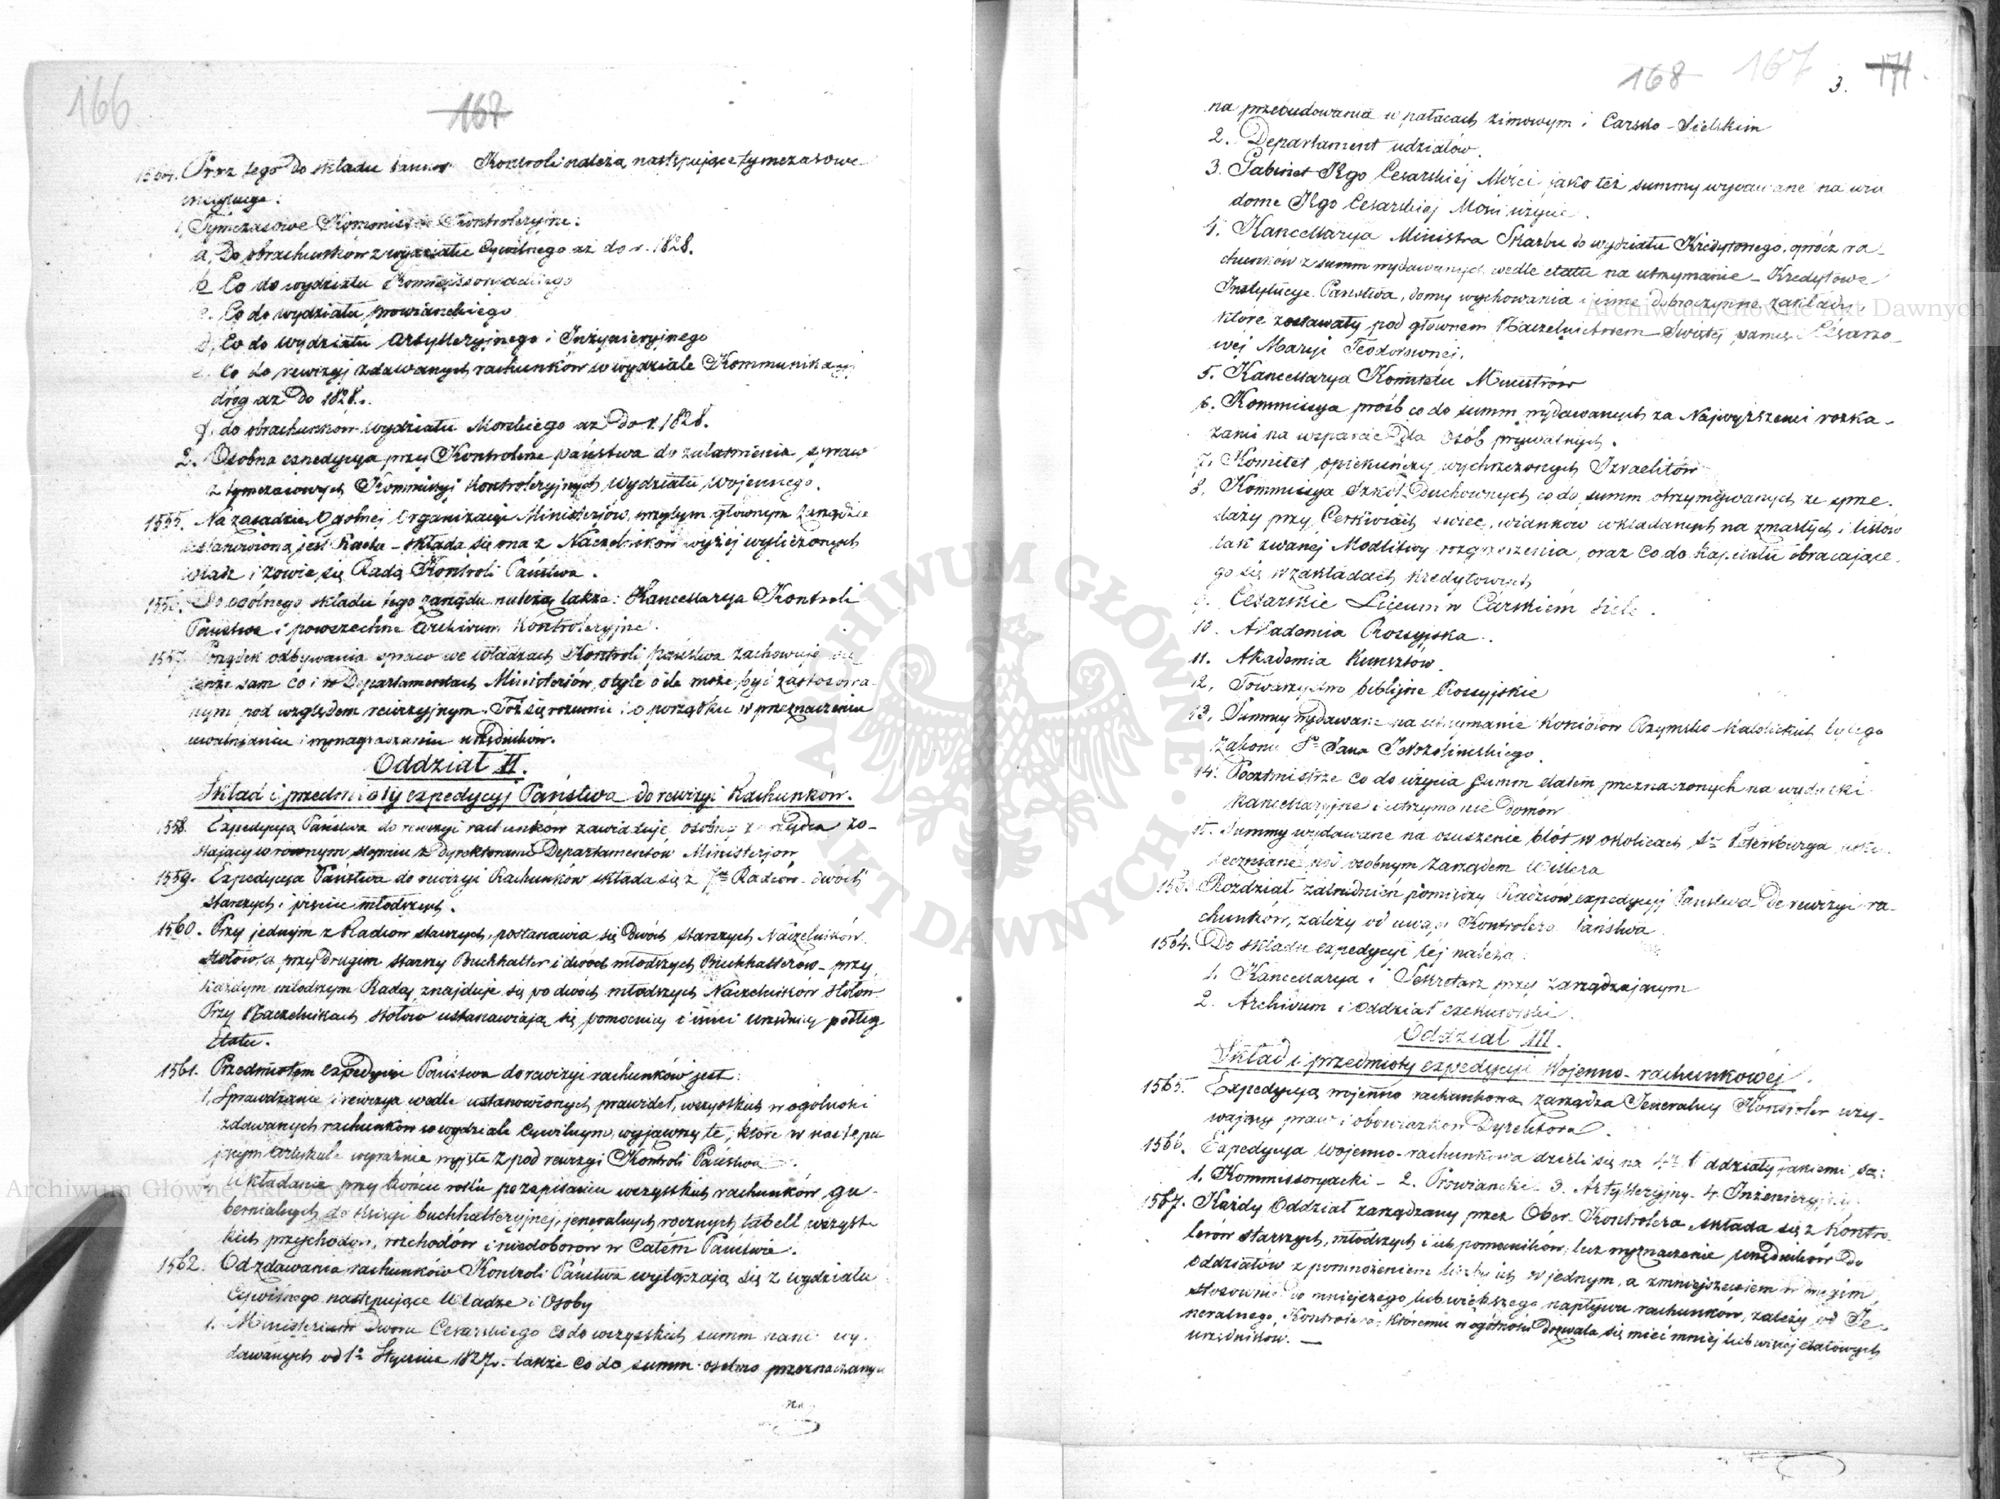 166
167
1554. Prócz tego do składu Kontroli należą następujące tymczasowe
instytucye:
1, Tymczasowe Kommissie Kontroleryjne:
a, Do obrachunków z wydziału Cywilnego aż do r. 1828.
b Co do wydziału Kommissoryackiego
c. Co do wydziału prowianckiego
d, Co do wydziału Artylleryjnego i Inżynieryjnego
e. Co do rewizyj zdawanych rachunków w wydziale Kommunikacyj
dróg aż do 1828.
f. do obrachunków wydziału Morskiego aż do r. 1828.
2. Osobna expedycya przy Kontrolerze państwa do załatwienia spraw
z tymczasowych Kommissyj Kontroleryjnych wydziału wojennego.
1555. Na zasadzie Ogólnej Organizacyi Ministerjów, przy tym głównym Zarządzie
ustanowioną jest Rada – składa się ona z Naczelników wyżej wyliczonych
władz i zowie się Radą Kontroli Państwa.
1556. Do ogólnego składu tego zarządu należą także: Kancellarya Kontroli
Państwa i powszechne Archivum Kontroleryjne.
1557. Porządek odbywania spraw we Władzach Kontroli państwa zachowuje się
tenże sam co i w Departamentach Ministerjów, o tyle o ile może być zastosowa-
nym pod względem rewizyjnym. Toż się rozumie i o porządku w przeznaczeniu
uwalnianiu i wynagradzaniu urzędników.
Oddział II.
Skład i przedmioty expedycyj Państwa do rewizyi Rachunków.
1558. Expedycyą Państwa do rewizyi rachunków zawiaduje osobny zarządca zo-
stający w równym stopniu z Dyrektorami Departamentów Ministerjów
1559. Expedycya Państwa do rewizyi Rachunków składa się z 7miu Radców – dwóch
starszych i pięciu młodszych.
1560. Przy jednym z Radców starszych, postanawia się dwóch starszych Naczelników
stołów, a przy drugim starszy Buchhalter i dwóch młodszych Buchhalterów – przy
każdym młodszym Radcy znajduje się po dwóch młodszych Naczelników stołów
Przy Naczelnikach stołów ustanawiają się pomocnicy i inni urzędnicy podług
Etatu.
1561. Przedmiotem expedycyi Państwa do rewizyi rachunków jest:
1, Sprawdzanie i rewizya wedle ustanowionych prawideł, wszystkich w ogólności
zdawanych rachunków w wydziale cywilnym, wyjąwszy te, które w następu
jnym artykule wyraźnie wyjęte z pod rewizyi Kontroli Państwa.
Układanie przy końcu roku po zapisaniu wszystkich rachunków gu-
bernialnych do xięgi buchhalteryjnej, jeneralnych rocznych tabell wszyst-
kich przychodów, rozchodów i niedoborów w Całém Państwie.
1562. Od zdawania rachunków Kontroli Państwa wyłączają się z wydziału
Cywilnego następujące Władze i Osoby
1. Ministerium Dworu Cesarskiego co do wszystkich summ nań wy-
dawanych od 1o Stycznia 1827 r. także co do summ osobno przeznaczanych
na
168 167 3. 171
na przebudowania w pałacach zimowym i Carsko-Sielskim
2. Departament udziałów.
3. Gabinet Jego Cesarskiej Mości jako też summy wydawane na wia
dome Jego Cesarskiej Mości użycie.
4. Kancellarya Ministra Skarbu do wydziału Kredytowego, oprócz ra-
chunków z summ wydawanych wedle etatu na utrzymanie – Kredytowe
Instytucye Państwa, domy wychowania i inne dobroczynne zakłady
które zostawały pod głównem Naczelnictwem Świętej pamięci Cesarzo-
wej Maryi Teodorównej.
5. Kancellarya Komitetu Ministrów
6. Kommissya próśb co do summ wydawanych za Najwyższemi rozka-
zami na wsparcie dla osób prywatnych.
7. Komitet opiekuńczy wychrzczonych Izraelitów
8. Kommissya Szkół Duchownych co do summ otrzymywanych ze sprze-
daży przy Cerkwiach swiec, wianków wkładanych na zmarłych i listów
tak zwanej Modlitwy rozgrzeszenia, oraz co do kapitału obracające-
go się w zakładach kredytowych
9. Cesarskie Liceum w Carskiem Siele.
10. Akademia Rossyjska.
11. Akademia Kunsztów.
12, Towarzystwo biblijne Rossyjskie
13, Summy wydawane na utrzymanie Kościołów Rzymsko-Katolickich byłego
Zakonu St. Jana Jerozolimskiego.
14. Pocztmistrze co do użycia summ etatem przeznaczonych na wydatki
kancellaryjne i utrzymanie domów
15. Summy wydawane na osuszenie błót w okolicach St. Petersburga usku
teczniane pod osobnym zarządem Willera
1563. Rozdział zatrudnień pomiędzy Radców expedycyj Państwa do rewizyi ra-
chunków, zależy od uwagi Kontrolera Państwa
1564. Do składu expedycyi téj należą:
1. Kancellarya i Sekretarz przy zarządzającym
2. Archivum i oddział exekutorski.
Oddział III.
Skład i przedmioty expedycyi Wojenno-rachunkowéj.
1565. Expedycyą wojenno rachunkową zarządza Jeneralny Kontroler uży-
wający praw i obowiązków Dyrektora.
1566. Expedycya Wojenno-rachunkowa dzieli się na 4ry Oddziały jakiemi są:
1. Kommissoryacki – 2. Prowiancki – 3. Artylleryjny – 4. Inżenieryjny
1567. Każdy Oddział zarządzany przez Ober-Kontrolera składa się z Kontro-
lerów starszych, młodszych i ich pomocników, lecz wyznaczenie urzędników do
oddziałów z pomnożeniem liczby ich w jednym, a zmniejszeniem w drugim
stosownie do mniejszego lub większego napływu rachunków, zależy od Je-
neralnego Kontrolera, któremu w ogólności dozwala się mieć mniej lub więcej etatowych
urzędników. —
Archiwum Główne Akt Dawnych
Archiwum Główne Akt Dawnych
ARCHIWUM GŁÓWNE AKT DAWNYCH